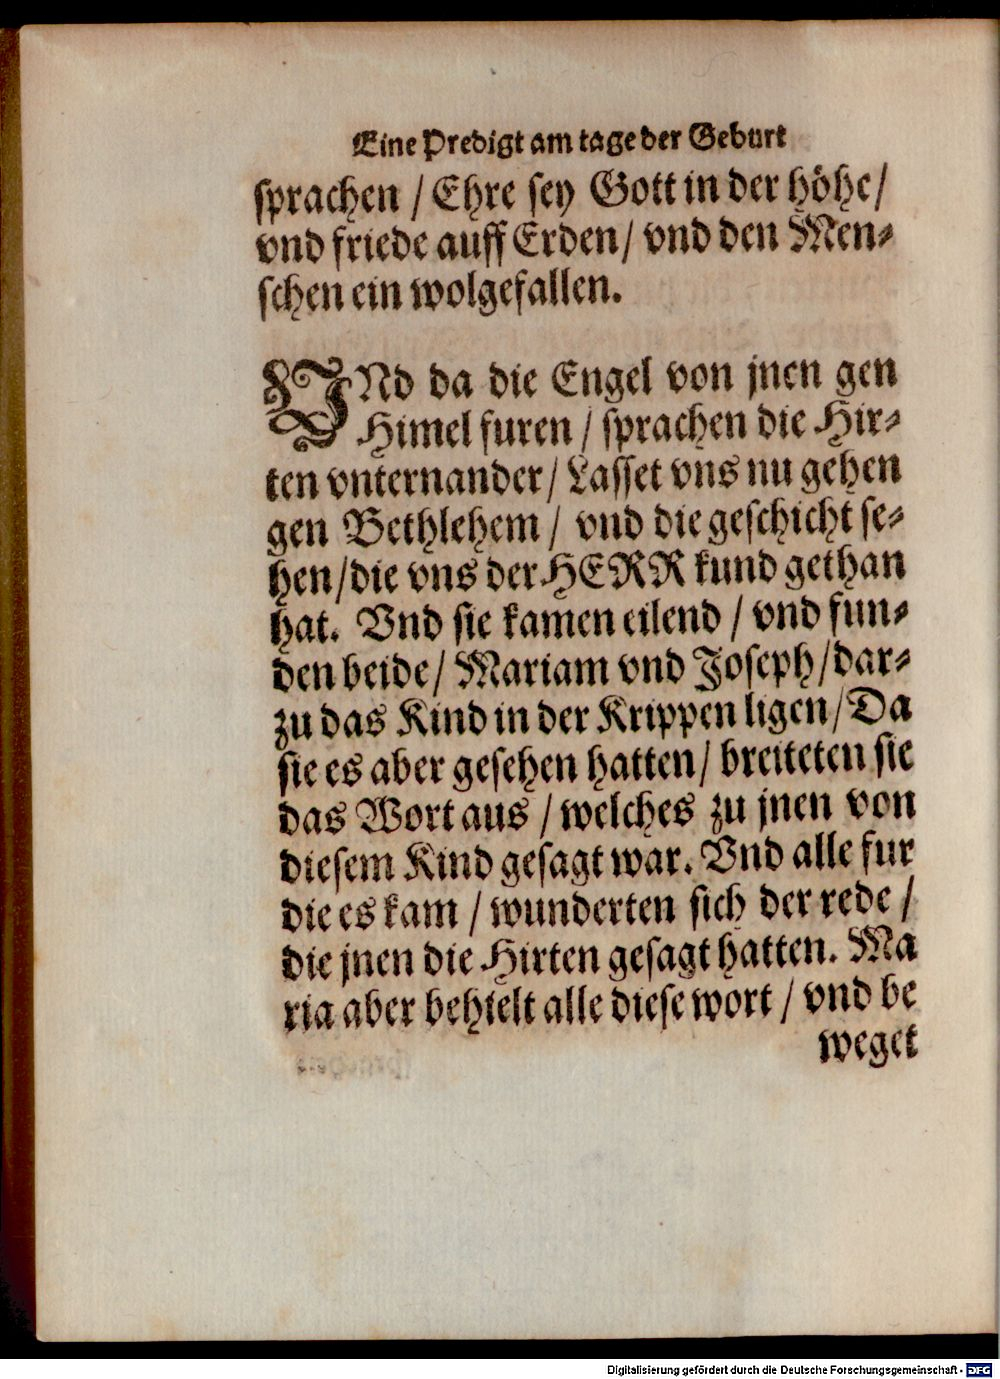 Eine Predigt am tage der Geburt
sprachen / Ehre sey Gott in der höhe/
vnd friede auff Erden/ vnd den Men⸗
schen ein wolgefallen.
VNd da die Engel von jnen gen
Himel furen / sprachen die Hir⸗
ten vnternander/ Lasset vns nu gehen
gen Bethlehem / vnd die geschicht se⸗
hen/die vns der HERR kund gethan
hat. Vnd sie kamen eilend / vnd fun⸗
den beide/ Mariam vnd Joseph/dar⸗
zu das Kind in der Krippen ligen/Da
sie es aber gesehen hatten/ breiteten sie
das Wort aus / welches zu jnen von
diesem Kind gesagt war. Vnd alle fur
die es kam / wunderten sich der rede /
die jnen die Hirten gesagt hatten. Ma
ria aber behielt alle diese wort / vnd be
weget
Digitalisierung gefördert durch die Deutsche Forschungsgemeinschaft - DFG